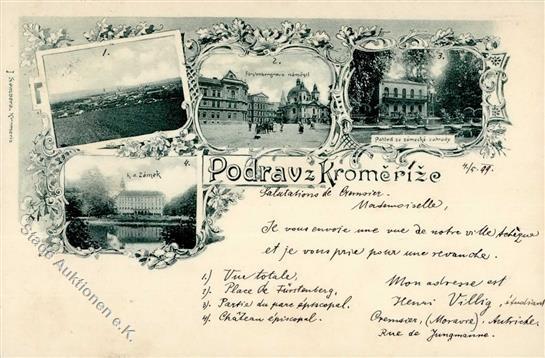 1.
2.
Fürstenbergovo náměstí
3.
Pohled ze zámecké zahrady
k. a. Zámek
4.
Pozdrav z Kroměříže
4/5. 99.
Salutations de Cremsier.
Mademoiselle,
Je vous envoie une vue de notre ville tchèque
et je vous prie pour une revanche.
1.) Vue totale,
2.) Place de Fürstenberg,
3.) Partie du parc épiscopal.
4.) Château épiscopal.
Mon adresse est
Henri Villig, étudiant
Cremsier, (Moravie), Autriche.
Rue de Jungmann.
Stade Auktionen e.K.